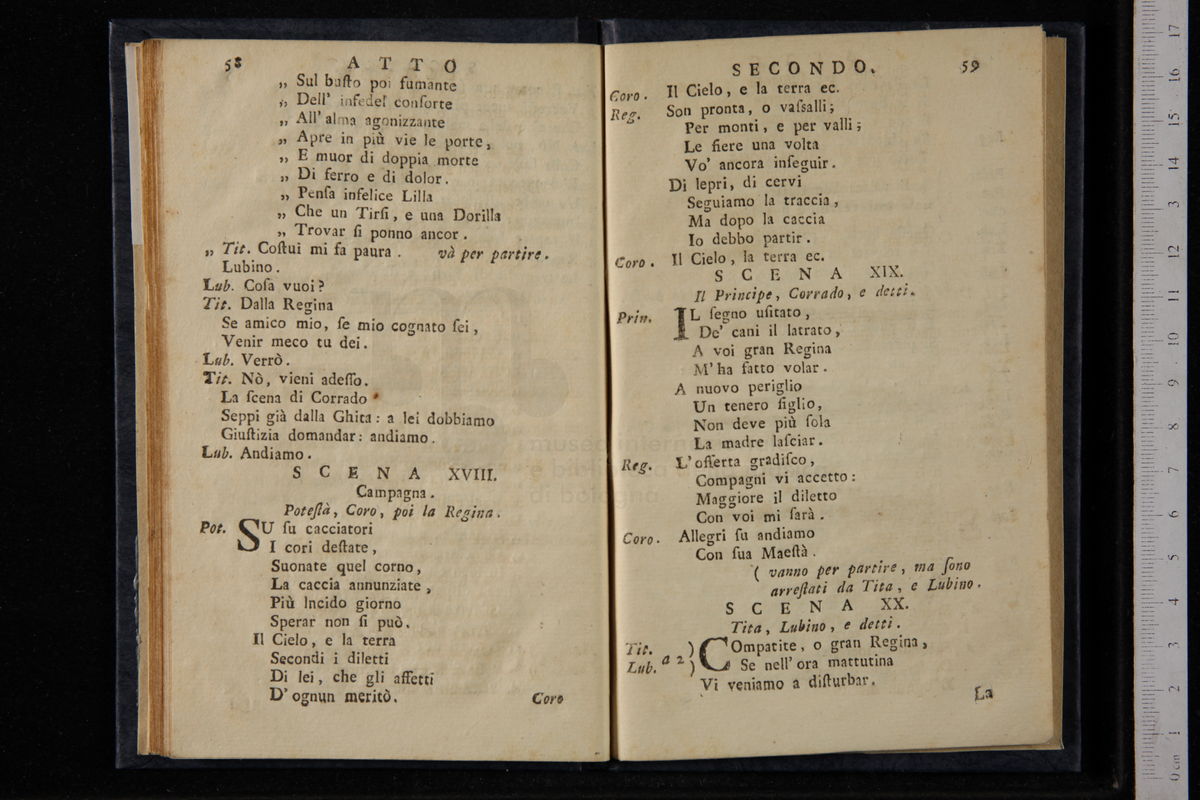 58 ATTO
„ Sul buſto poi fumante
„ Dell' infedel conſorte
„ All' alma agonizzante
„ Apre in più vie le porte,
„ E muor di doppia morte
„ Di ferro e di dolor.
„ Penſa infelice Lilla
„ Che un Tirſi, e una Dorilla
„ Trovar ſi ponno ancor.
„ Tit. Coſtui mi fa paura. và per partire.
Lubino.
Lub. Coſa vuoi?
Tit. Dalla Regina
Se amico mio, ſe mio cognato ſei,
Venir meco tu dei.
Lub. Verrò.
Tit. Nò, vieni adeſſo.
La ſcena di Corrado
Seppi già dalla Ghita: a lei dobbiamo
Giuſtizia domandar: andiamo.
Lub. Andiamo.
SCENA XVIII.
Campagna.
Poteſtà, Coro, poi la Regina.
Pot. SU ſu cacciatori
I cori deſtate,
Suonate quel corno,
La caccia annunziate,
Più lncido giorno
Sperar non ſi può.
Il Cielo, e la terra
Secondi i diletti
Di lei, che gli affetti
D' ognun meritò.
Coro
SECONDO. 59
Coro. Il Cielo, e la terra ec.
Reg. Son pronta, o vaſsalli;
Per monti, e per valli;
Le fiere una volta
Vo' ancora inſeguir.
Di lepri, di cervi
Seguiamo la traccia,
Ma dopo la caccia
Io debbo partir.
Coro. Il Cielo, la terra ec.
SCENA XIX.
Il Principe, Corrado, e detti.
Prin. IL ſegno uſitato,
De' cani il latrato,
A voi gran Regina
M' ha fatto volar.
A nuovo periglio
Un tenero figlio,
Non deve più ſola
La madre laſciar.
Reg. L' offerta gradiſco,
Compagni vi accetto:
Maggiore il diletto
Con voi mi ſarà.
Coro. Allegri ſu andiamo
Con ſua Maeſtà.
( vanno per partire, ma ſono
arreſtati da Tita, e Lubino.
SCENA XX.
Tita, Lubino, e detti.
Tit. ) COmpatite, o gran Regina,
Lub. a 2 ) Se nell' ora mattutina
Vi veniamo a diſturbar.
La